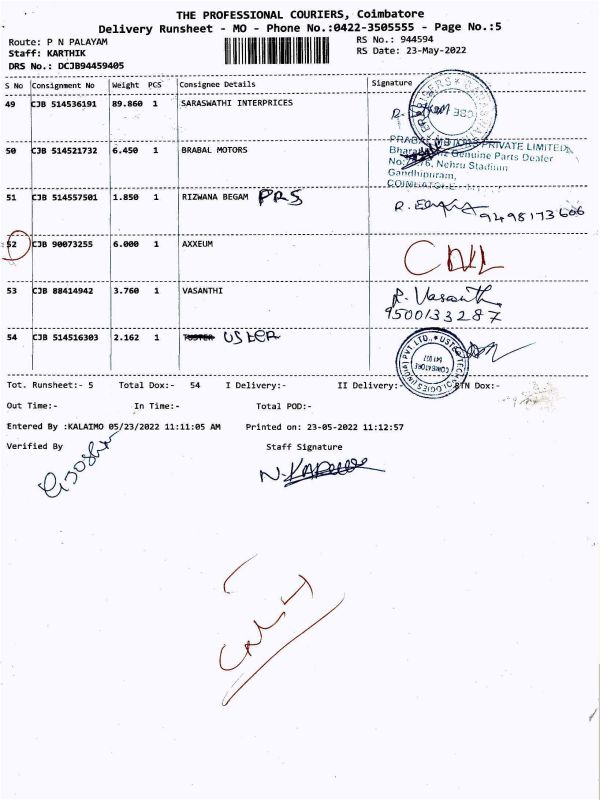 THE PROFESSIONAL COURIERS, Coimbatore
Delivery Runsheet - MO - Phone No.:0422-3505555 - Page No.:5
Route: P N PALAYAM RS No.: 944594
Staff: KARTHIK RS Date: 23-May-2022
DRS No.: DCJB94459405
S No Consignment No Weight PCS Consignee Details Signature
49 CJB 514536191 89.860 1 SARASWATHI INTERPRICES
50 CJB 514521732 6.450 1 BRABAL MOTORS
MOTORS PRIVATE LIMITED
Genuine Parts Dealer
Nehru Stadium
Gandhipuram,
COIMBATORE
51 CJB 514557501 1.850 1 RIZWANA BEGAM PRS
9498173606
52 CJB 90073255 6.000 1 AXXEUM
53 CJB 88414942 3.760 1 VASANTHI R. Vasanth
9500133287
54 CJB 514516303 2.162 1 USTER
Tot. Runsheet:- 5 Total Dox:- 54 I Delivery:- II Delivery:- RTN Dox:-
Out Time:- In Time:- Total POD:-
Entered By :KALAIMO 05/23/2022 11:11:05 AM Printed on: 23-05-2022 11:12:57
Verified By Staff Signature